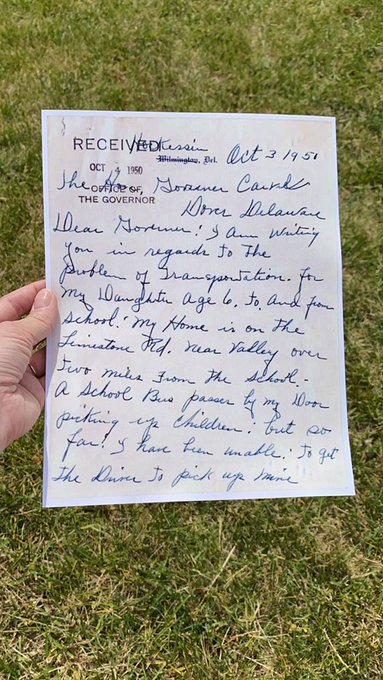 RECEIVED Hockessin
Wilmington, Del. Oct 3 1950
OCT 1950
The Governer Carvel
OFFICE OF
THE GOVERNOR
Dover Delaware
Dear Governer! I Am Writing
you in regards to The
problem of Transportation. For
my Daughter Age 6. to And from
school. My Home is on The
Limestone Rd. near Valley over
Two miles From The School.-
A School Bus passes by my Door
picking up children! but so
far! I have been unable. To get
The Driver to pick up mine